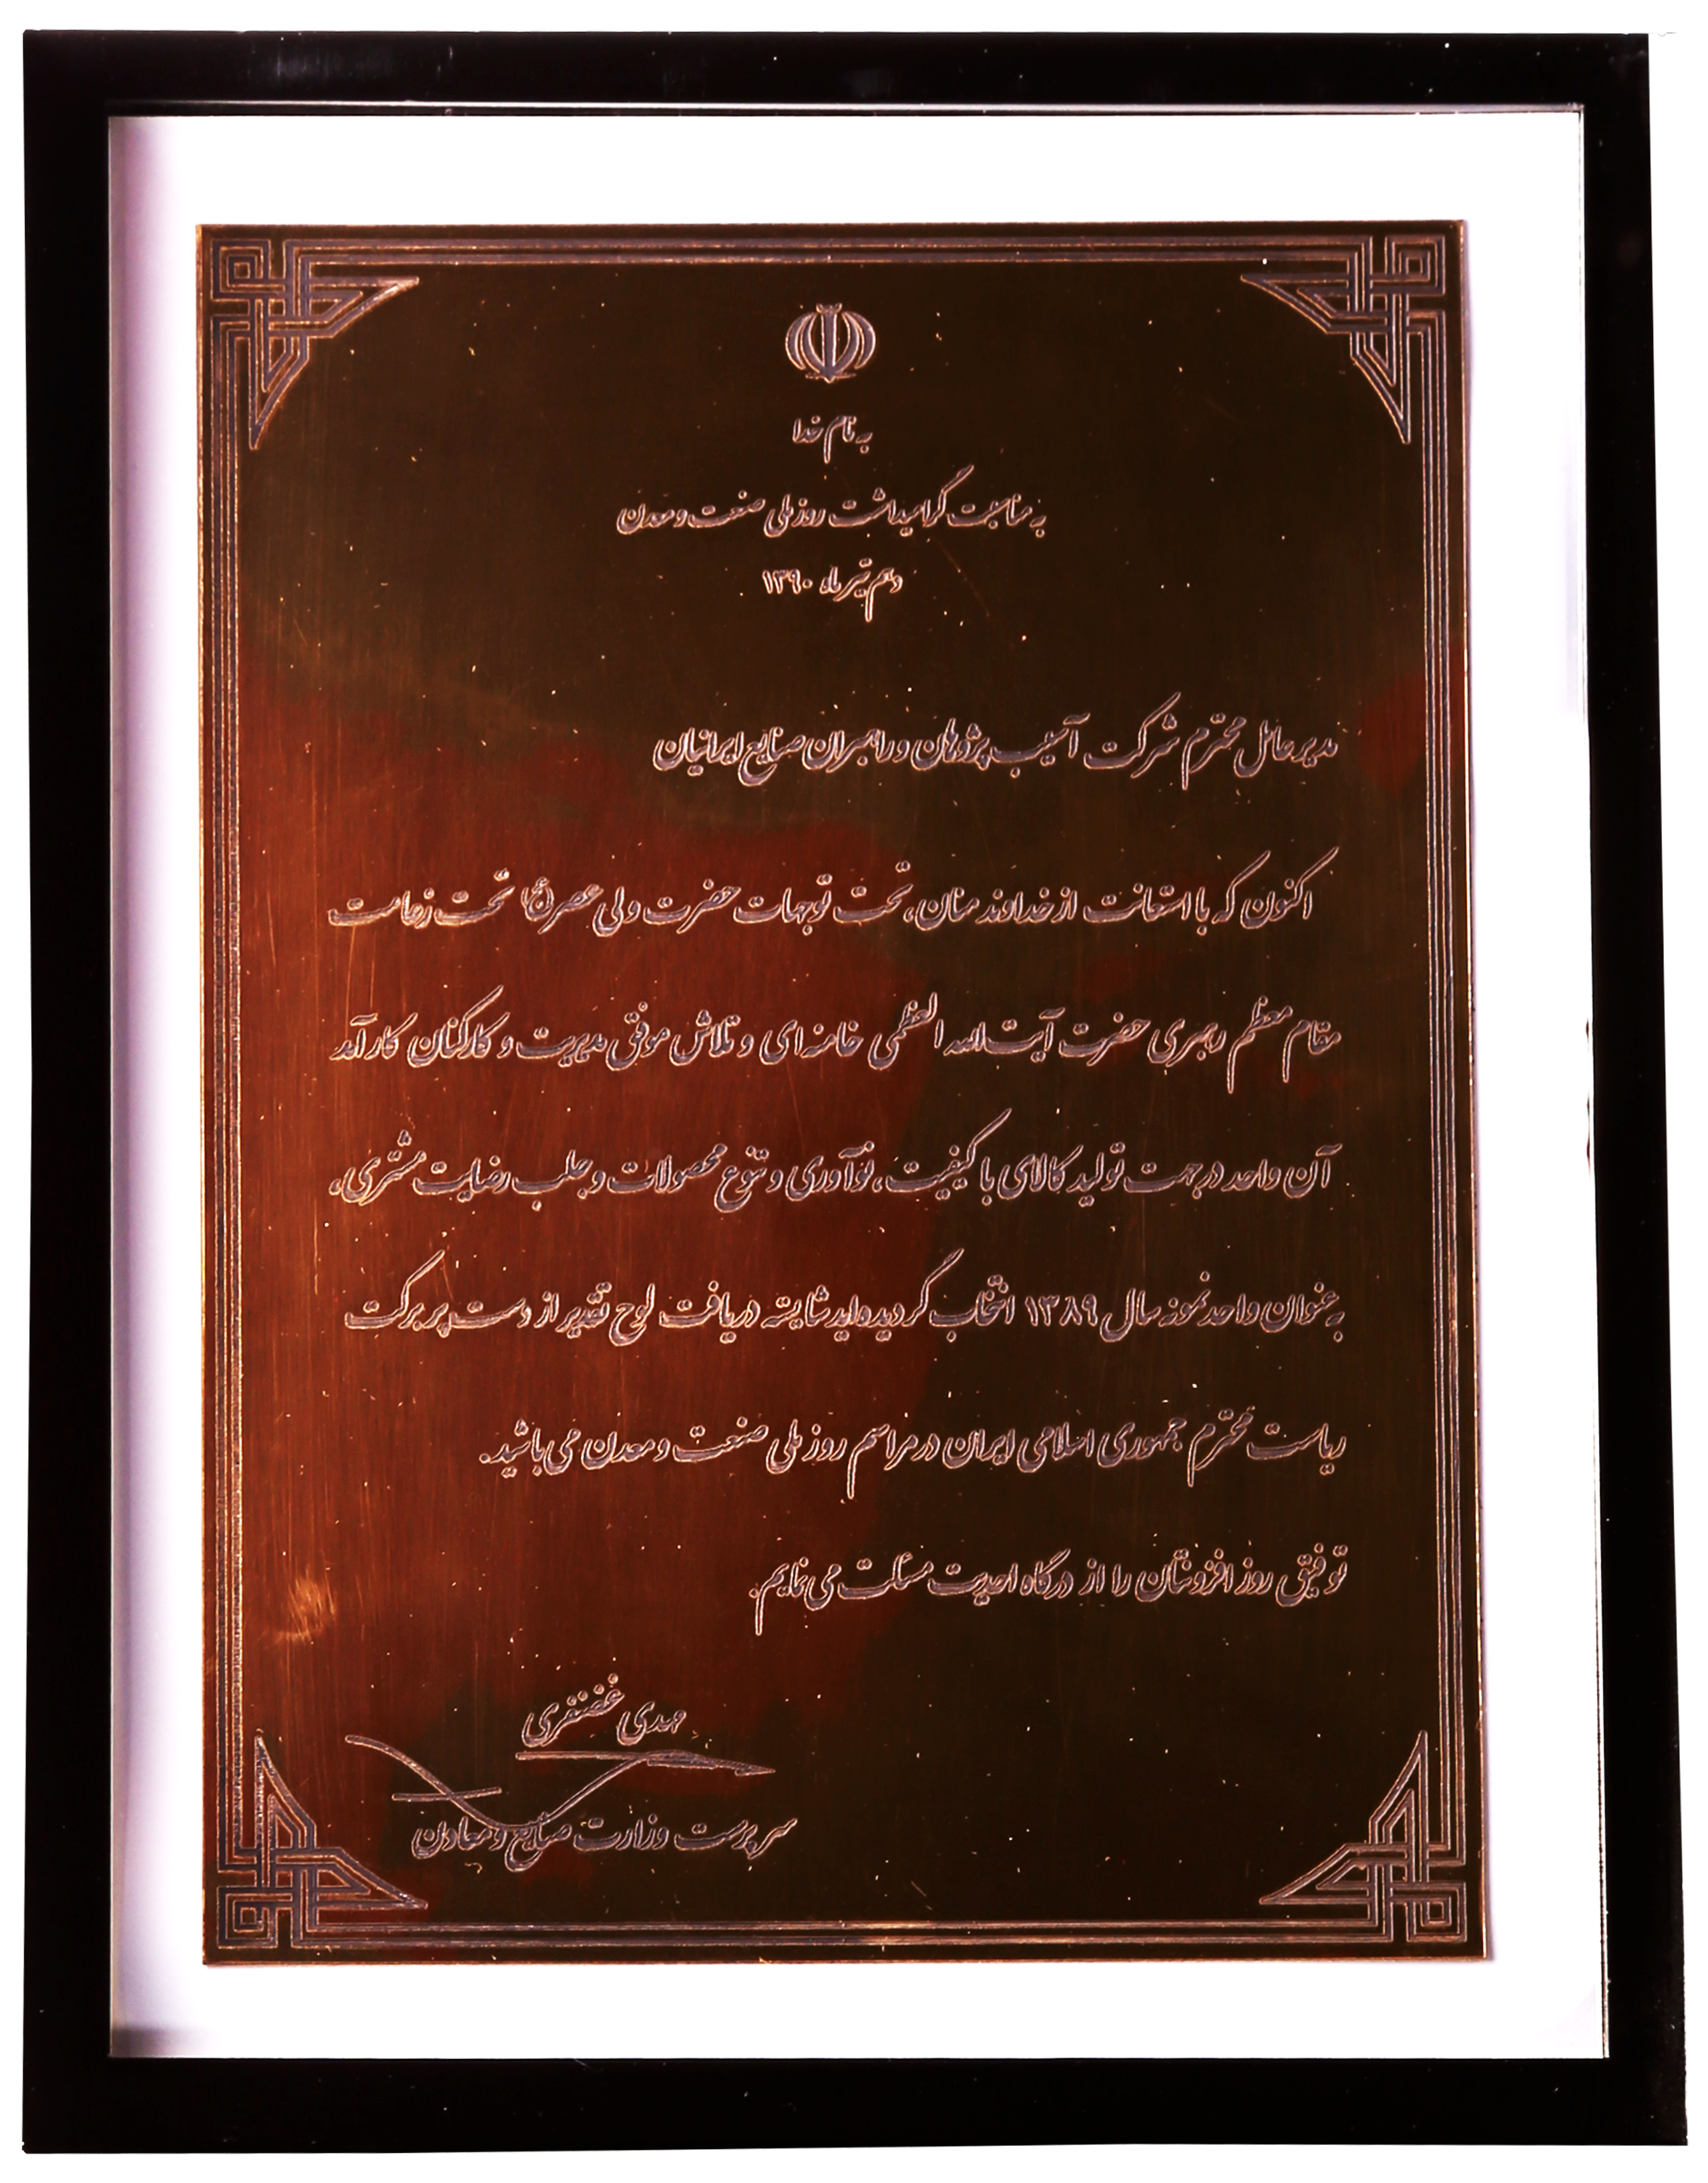 به نام خدا
به مناسبت گرامیداشت روز ملی صنعت و معدن
دهم تیر ماه ۱۳۹۰
مدیر عامل محترم شرکت آسیب پژوهان و راهبران صنایع ایرانیان
اکنون که با استعانت از خداوند منان، تحت توجهات حضرت ولی عصر(عج) تحت زعامت
مقام معظم رهبری حضرت آیت الله العظمی خامنه ای و تلاش موفق مدیریت و کارکنان کارآمد
آن واحد در جهت تولید کالای با کیفیت، نوآوری و تنوع محصولات و جلب رضایت مشتری،
به عنوان واحد نمونه سال ۱۳۸۹ انتخاب گردیده اید شایسته دریافت لوح تقدیر از دست پر برکت
ریاست محترم جمهوری اسلامی ایران در مراسم روز ملی صنعت و معدن می باشید.
توفیق روز افزونتان را از درگاه احدیت مسئلت می نمایم.
مهدی غضنفری
سرپرست وزارت صنایع و معادن